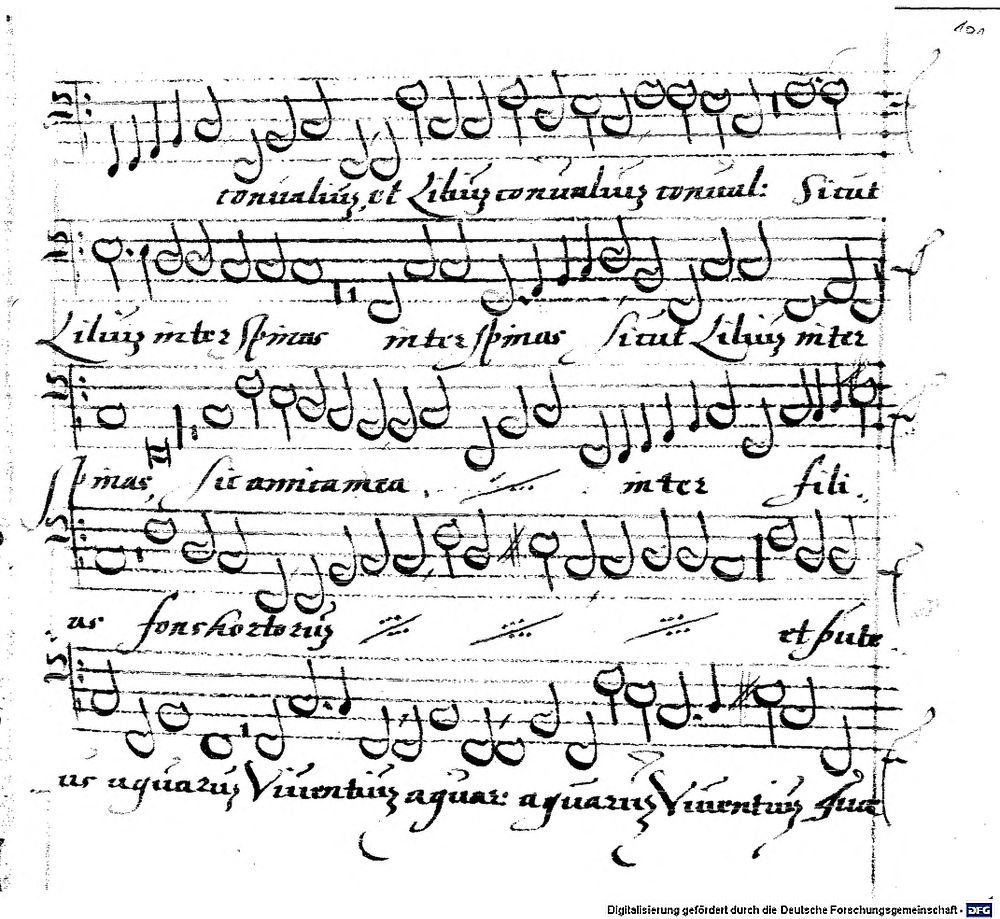 101
conualiuʒ, et Liliuʒ conualiuʒ conual: Sicut
Liliuʒ inter Spinas inter spinas sicut Liliuʒ inter
Spinas, sic amica mea inter fili.
as fons hortoruʒ et pute
us aquaruʒ Viuentiuʒ aquar: aquaruʒ Viuentiuʒ quae
Digitalisierung gefördert durch die Deutsche Forschungsgemeinschaft - DFG